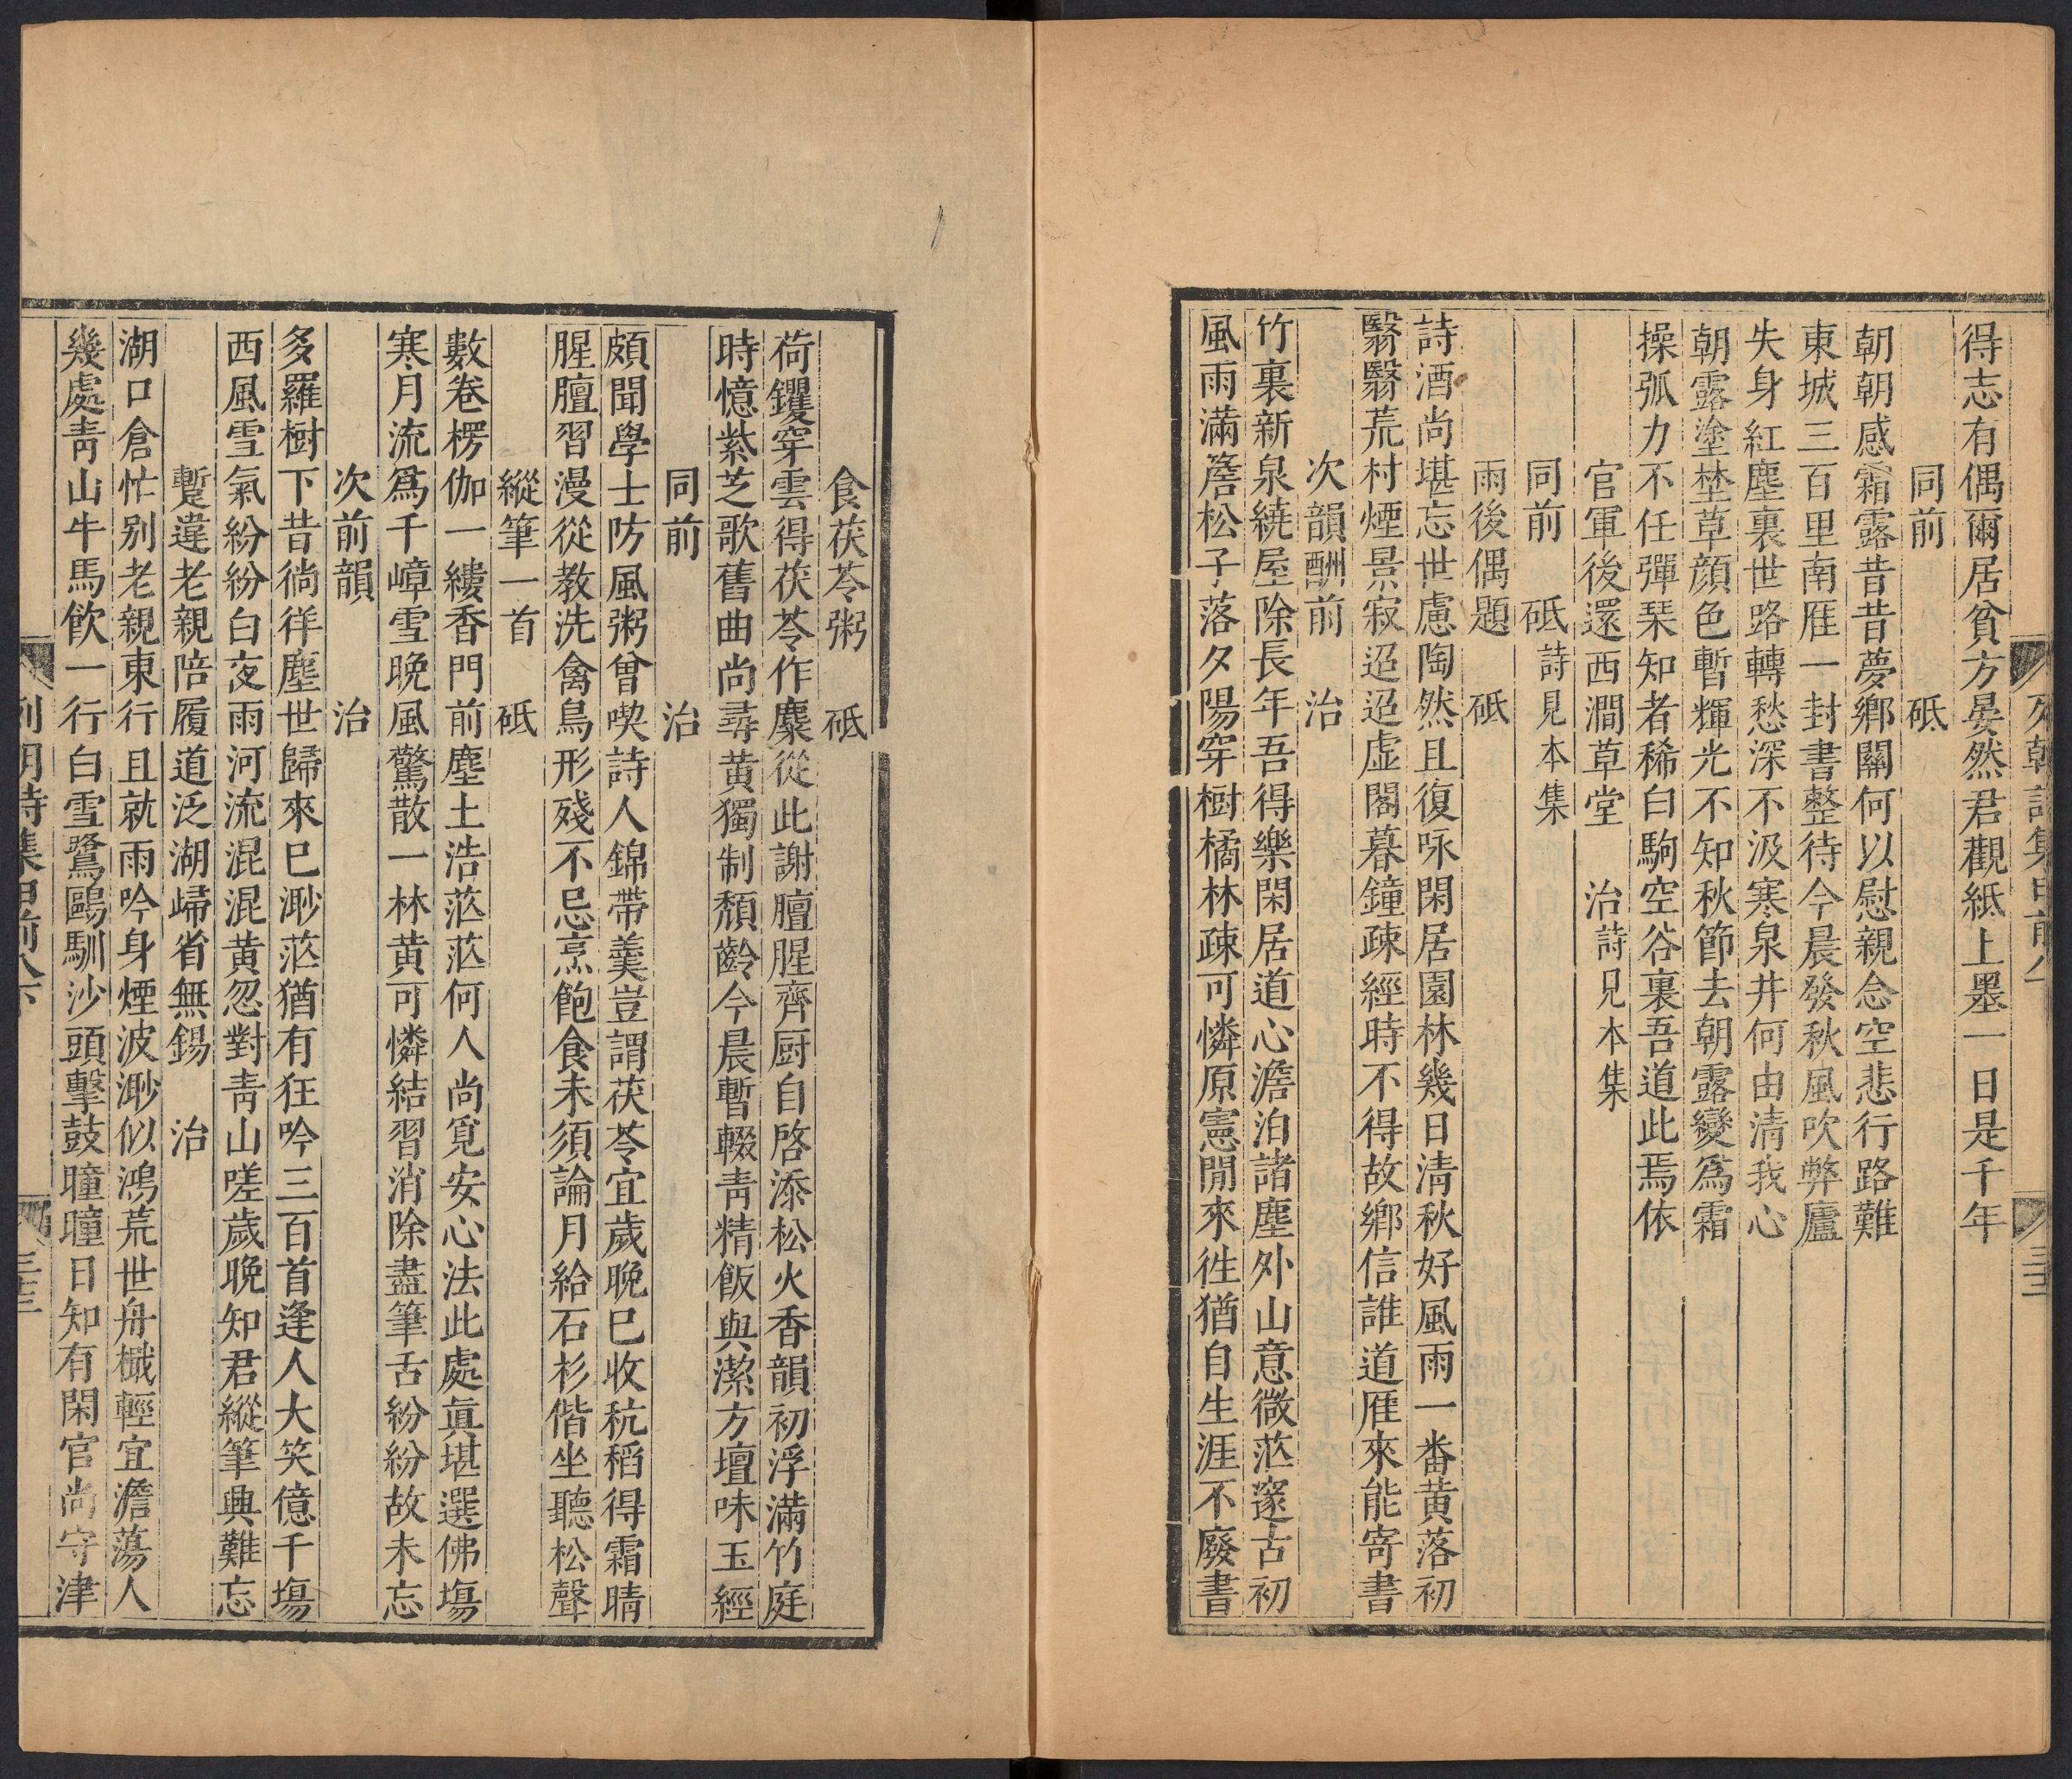 列朝詩集甲前八
三十三
得志有偶爾居貧方晏然君觀紙上墨一日是千年
同前 砥
朝朝感霜露昔昔夢鄉關何以慰親念空悲行路難
東城三百里南雁一封書整待今晨發秋風吹弊廬
失身紅塵裏世路轉愁深不汲寒泉井何由清我心
朝露塗埜草顔色暫輝光不知秋節去朝露變爲霜
操弧力不任彈琹知者稀白駒空谷裏吾道此焉依
官軍後還西澗草堂 治詩見本集
同前 砥詩見本集
雨後偶題 砥
詩酒尚堪忘世慮陶然且復咏閑居園林幾日清秋好風雨一番黄落初
翳翳荒村煙景寂迢迢虚閣暮鐘疎經時不得故鄉信誰道雁來能寄書
次韻酬前 治
竹裏新泉繞屋除長年吾得樂閑居道心澹泊諸塵外山意微茫邃古初
風雨滿簷松子落夕陽穿樹橘林疎可憐原憲閒來徃猶自生涯不廢書
食茯苓粥 砥
荷钁穿雲得茯苓作麋從此謝膻腥齊厨自啓添松火香韻初浮滿竹庭
時憶紫芝歌舊曲尚尋黄獨制頽齡今晨暫輟青精飯與潔方壇味玉經
同前 治
頗聞學士防風粥曾喫詩人錦帶羹豈謂茯苓宜歲晚巳收秔稻得霜晴
腥膻習漫從教洗禽鳥形殘不忌烹飽食未須論月給石杉偕坐聽松聲
縱筆一首 砥
數卷楞伽一縷香門前塵土浩茫茫何人尚覓安心法此處眞堪選佛塲
寒月流爲千嶂雪晚風驚散一林黄可憐結習消除盡筆舌紛紛故未忘
次前韻 治
多羅樹下昔徜徉塵世歸來巳渺茫猶有狂吟三百首逢人大笑億千塲
西風雪氣紛紛白夜雨河流混混黄忽對青山嗟歲晚知君縱筆興難忘
暫違老親陪履道泛湖歸省無錫 治
湖口倉忙别老親東行且就雨吟身煙波渺似鴻荒世舟檝輕宜澹蕩人
幾處青山牛馬飲一行白雪鷺鷗馴沙頭擊鼓曈曈日知有閑官尚守津
列朝詩集甲前八下
三十三